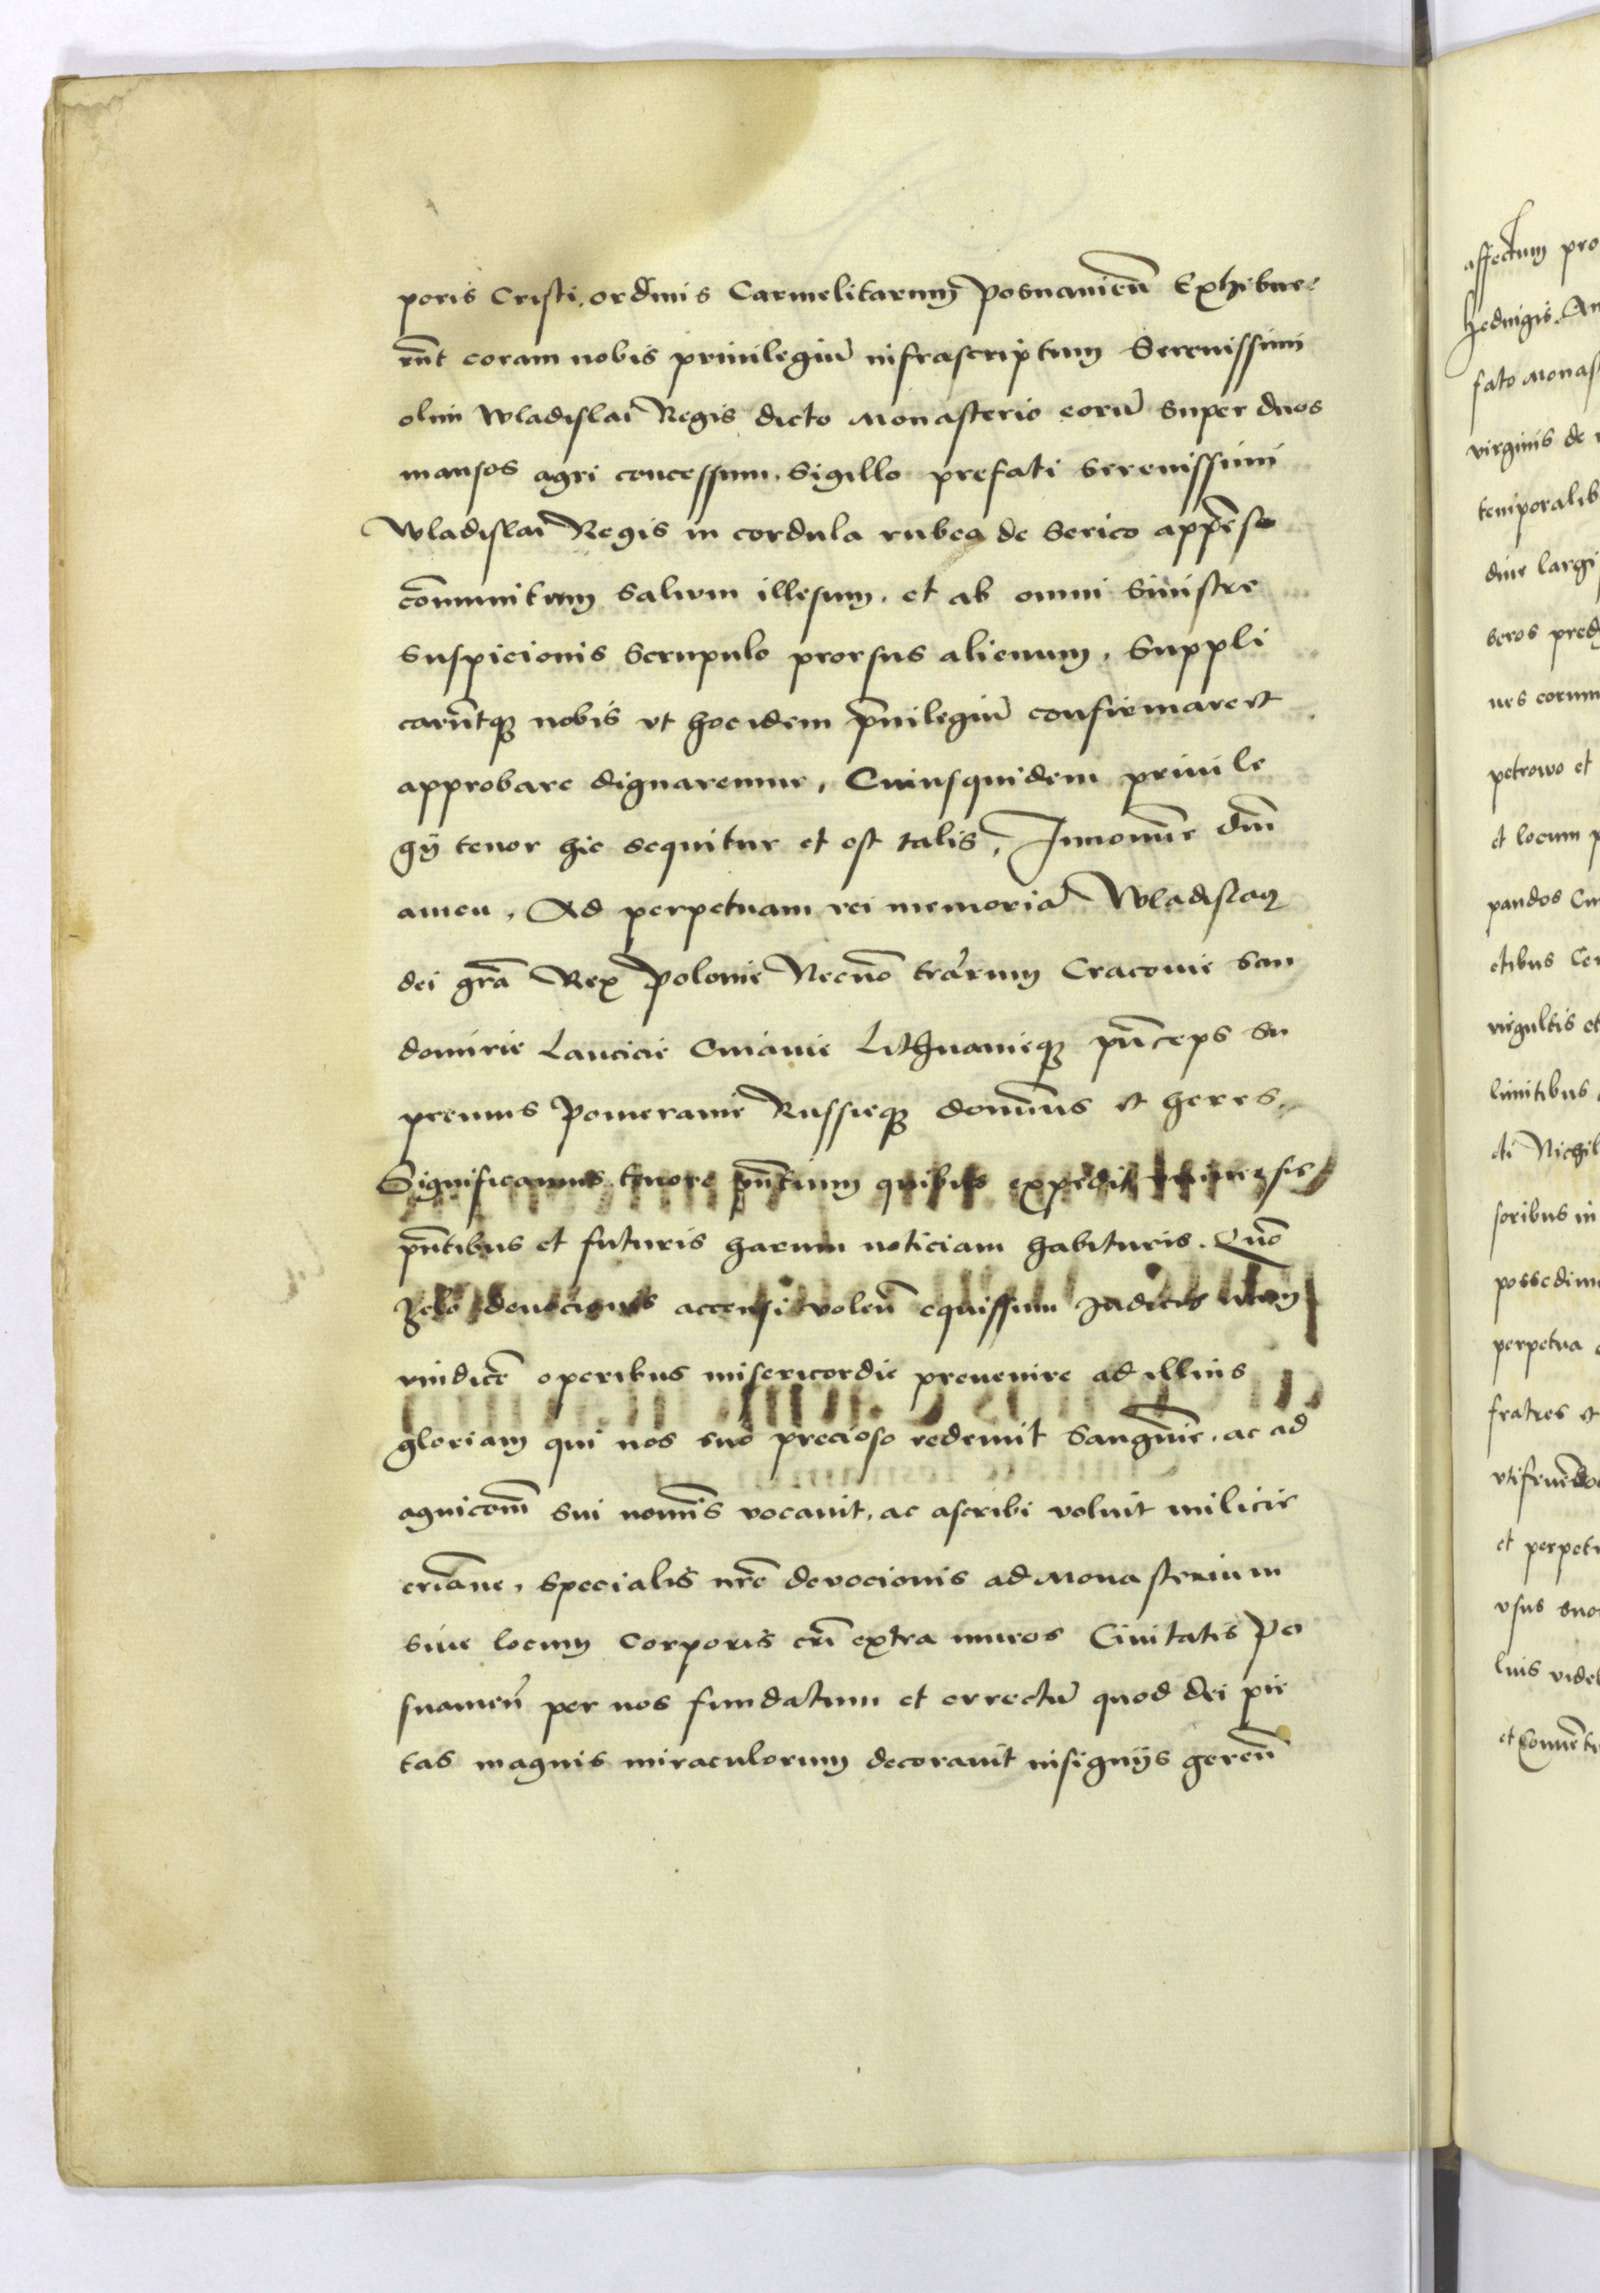 poris Cristi, ordinis Carmelitarum Posnanien̄ Exhibue
rūt coram nobis priuilegiū infrascriptum Serenissimi
olim Wladislai Regis dicto Monasterio eorū super duos
mansos agri concessum, Sigillo prefati Serenissimi
Wladislai Regis in cordula rubea de Serico appēso
cōmunitum Saluum illesum, et ab omni Sinistre
suspicionis Scrupulo prorsus alienum, Suppli
carūtq3 nobis vt hoc idem pͥuilegiū confirmare et
approbare dignaremur, Cuiusquidem priuile
gÿ tenor hic sequitur et est talis, In nomīe dn̄i
amen, Ad perpetuam rei memoriā Wladislaꝰ
dei grā Rex Polonie Necnō trārum Cracouie San
domirie Lancicie Cuiauie Lithuanieq3 pͥnceps Su
premus Pomeranie Russieq3 domīnus et heres,
Significamus tenore pn̄tium quibus expedit vniuersis
pn̄tibus et futuris harum noticiam habituris. Quō
Zelo deuocionis accensi volen̄ equissimi Judicis
vindictē operibus misericordie preuenire ad illius
gloriam qui nos suo precioso redemit Sanguīe, ac ad
agnicōm̄ sui nomīs vocauit, ac ascribi voluit milicie
cr̄iane, Specialis nr̄e deuocionis ad Monasterium
siue locum Corporis cr̄i extra muros Ciuitatis Po
snanien̄ per nos fundatum et errectū quod dei pie
tas magnis miraculorum decorauit insignÿs geren̄
affectum pro
Hedwigis, An
fato Monas
virginis de
temporalib
diue largi
seros pred
ues eorum
petrowo et
et locum p
pandos Cu
ctibus Cen
virgultis et
limitibus
cti Nichil
soribus in
possedim
perpetua
fratres et
vtifruēdo
et perpet
vsus suo
luis videl
et Conuēt